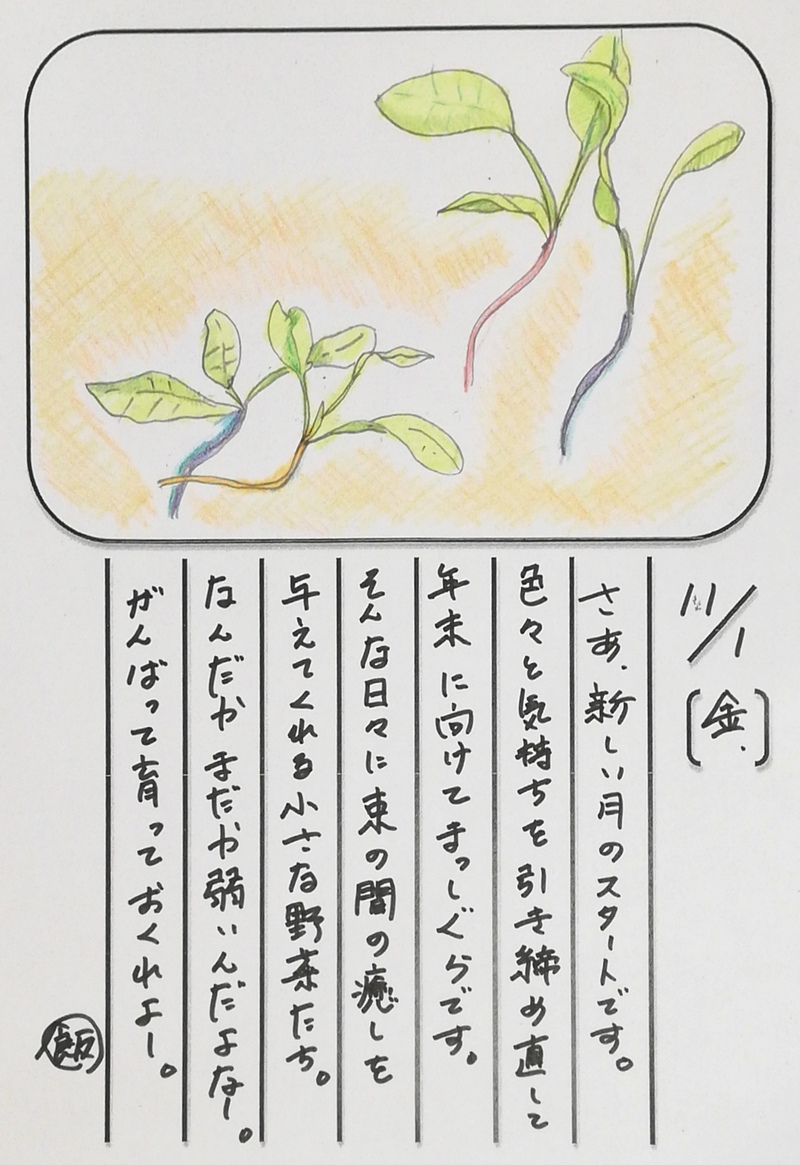 11/1
(金)
さあ、新しい月のスタートです。
色々と気持ちを引き締め直して
年末に向けてまっしぐらです。
そんな日々に束の間の癒しを
与えてくれる小さな野菜たち。
なんだかまだか弱いんだよなー。
がんばって育っておくれよー。
飯